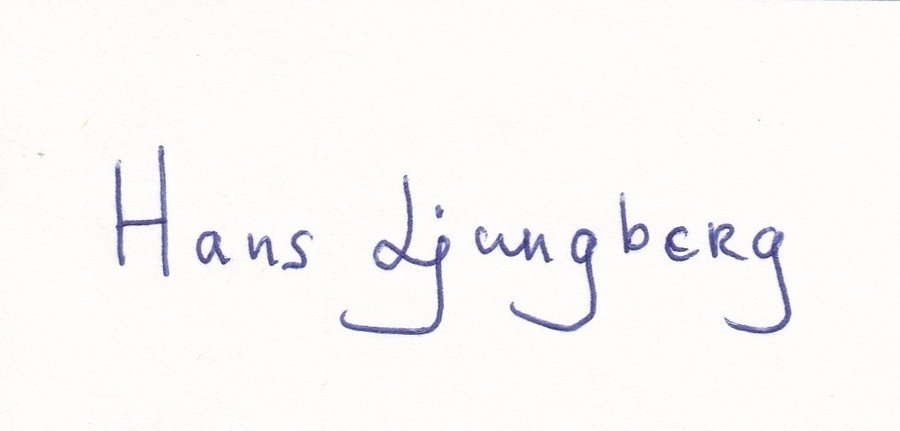 Hans Ljungberg